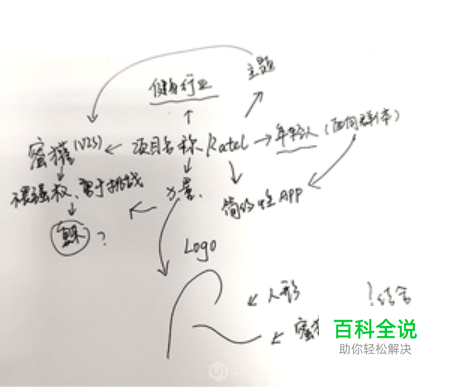 主题
健身行业
蜜獾(VIS) ← 项目名称 Ratel → 年轻人 (面向群体)
不畏强权、勇于挑战
力量
简约性 APP
?
Logo
人形
? 结合
蜜獾
百科全说
助你轻松解决